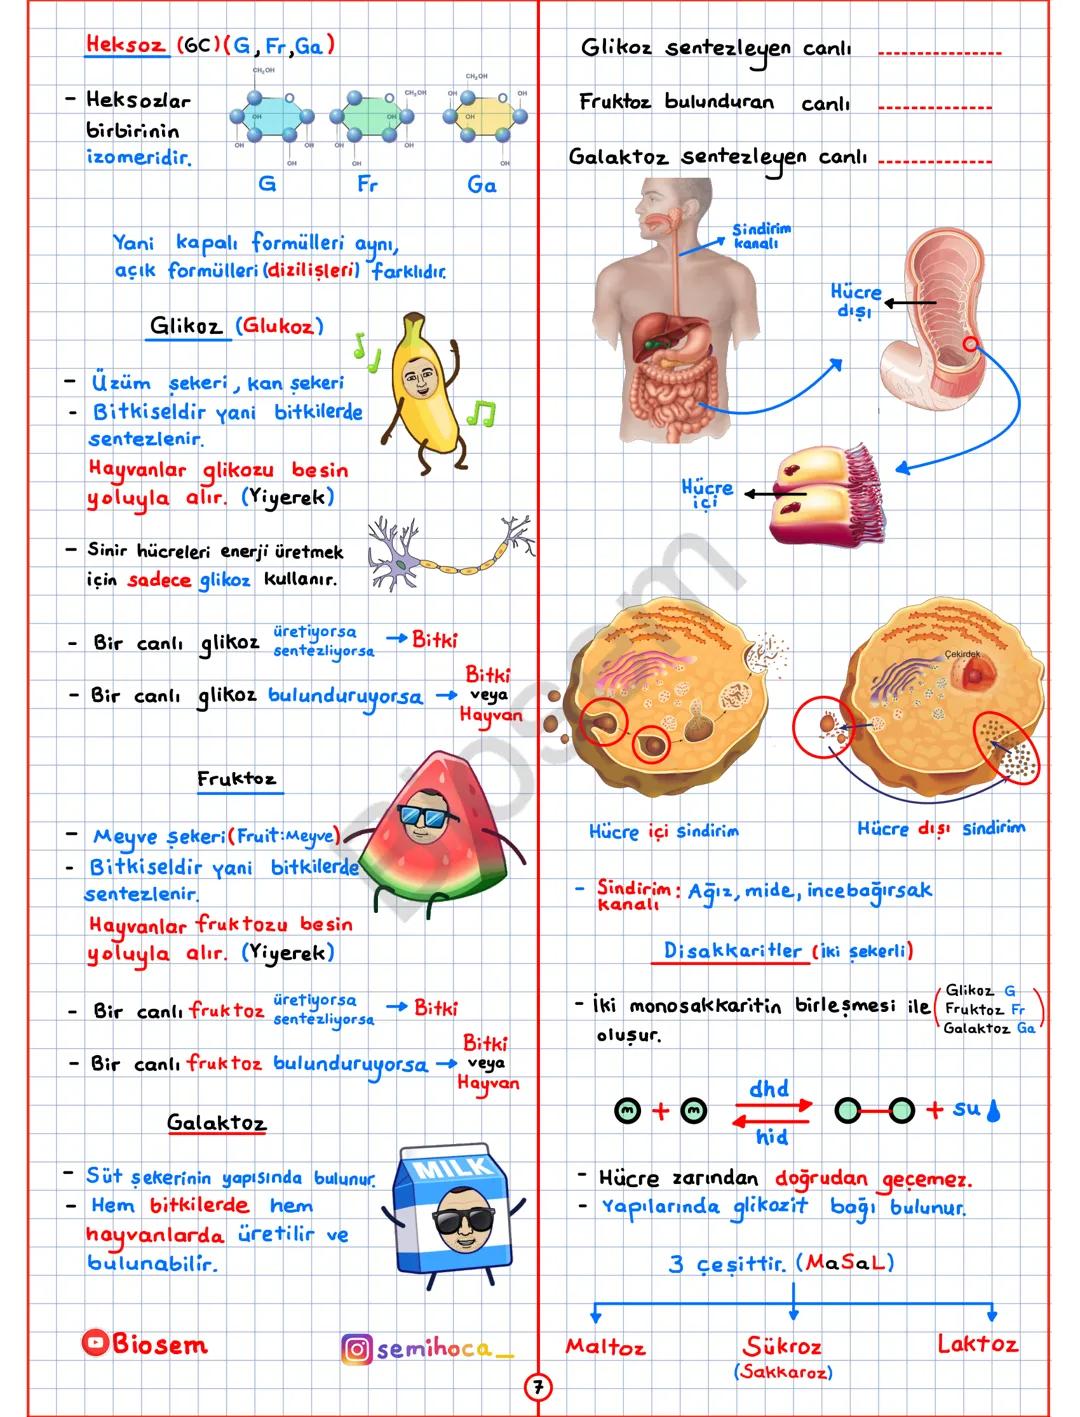 Heksoz (6C)(G, Fr, Ga)
- Heksozlar
birbirinin
izomeridir.
CH₂OH
O
OH
OH
OH
OH
G
O
CH₂OH
OH
OH
OH
OH
Fr
CH₂OH
OH
O
OH
OH
OH
Ga
Yani kapalı formülleri aynı,
açık formülleri (dizilişleri) farklıdır.
Glikoz (Glukoz)
- Üzüm şekeri, kan şekeri
- Bitkiseldir yani bitkilerde
sentezlenir.
Hayvanlar glikozu besin
yoluyla alır. (Yiyerek)
- Sinir hücreleri enerji üretmek
için sadece glikoz kullanır.
- Bir canlı glikoz üretiyorsa sentezliyorsa → Bitki
- Bir canlı glikoz bulunduruyorsa → Bitki veya Hayvan
Fruktoz
- Meyve şekeri (Fruit:Meyve)
- Bitkiseldir yani bitkilerde
sentezlenir.
Hayvanlar fruktozu besin
yoluyla alır. (Yiyerek)
- Bir canlı fruktoz üretiyorsa sentezliyorsa → Bitki
- Bir canlı fruktoz bulunduruyorsa → Bitki veya Hayvan
Galaktoz
- Süt şekerinin yapısında bulunur.
- Hem bitkilerde hem
hayvanlarda üretilir ve
bulunabilir.
MILK
Biosem
semihoca_
7
Glikoz sentezleyen canlı ----------
Fruktoz bulunduran canlı ----------
Galaktoz sentezleyen canlı ----------
Sindirim
kanalı
Hücre
dışı
Hücre
içi
Biosem
Çekirdek
Hücre içi sindirim
Hücre dışı sindirim
- Sindirim kanalı : Ağız, mide, incebağırsak
Disakkaritler (iki şekerli)
- İki monosakkaritin birleşmesi ile
oluşur.
(Glikoz G
Fruktoz Fr
Galaktoz Ga)
m + m dhd hid + su
- Hücre zarından doğrudan geçemez.
- Yapılarında glikozit bağı bulunur.
3 çeşittir. (MaSaL)
Maltoz
Sükroz
(Sakkaroz)
Laktoz